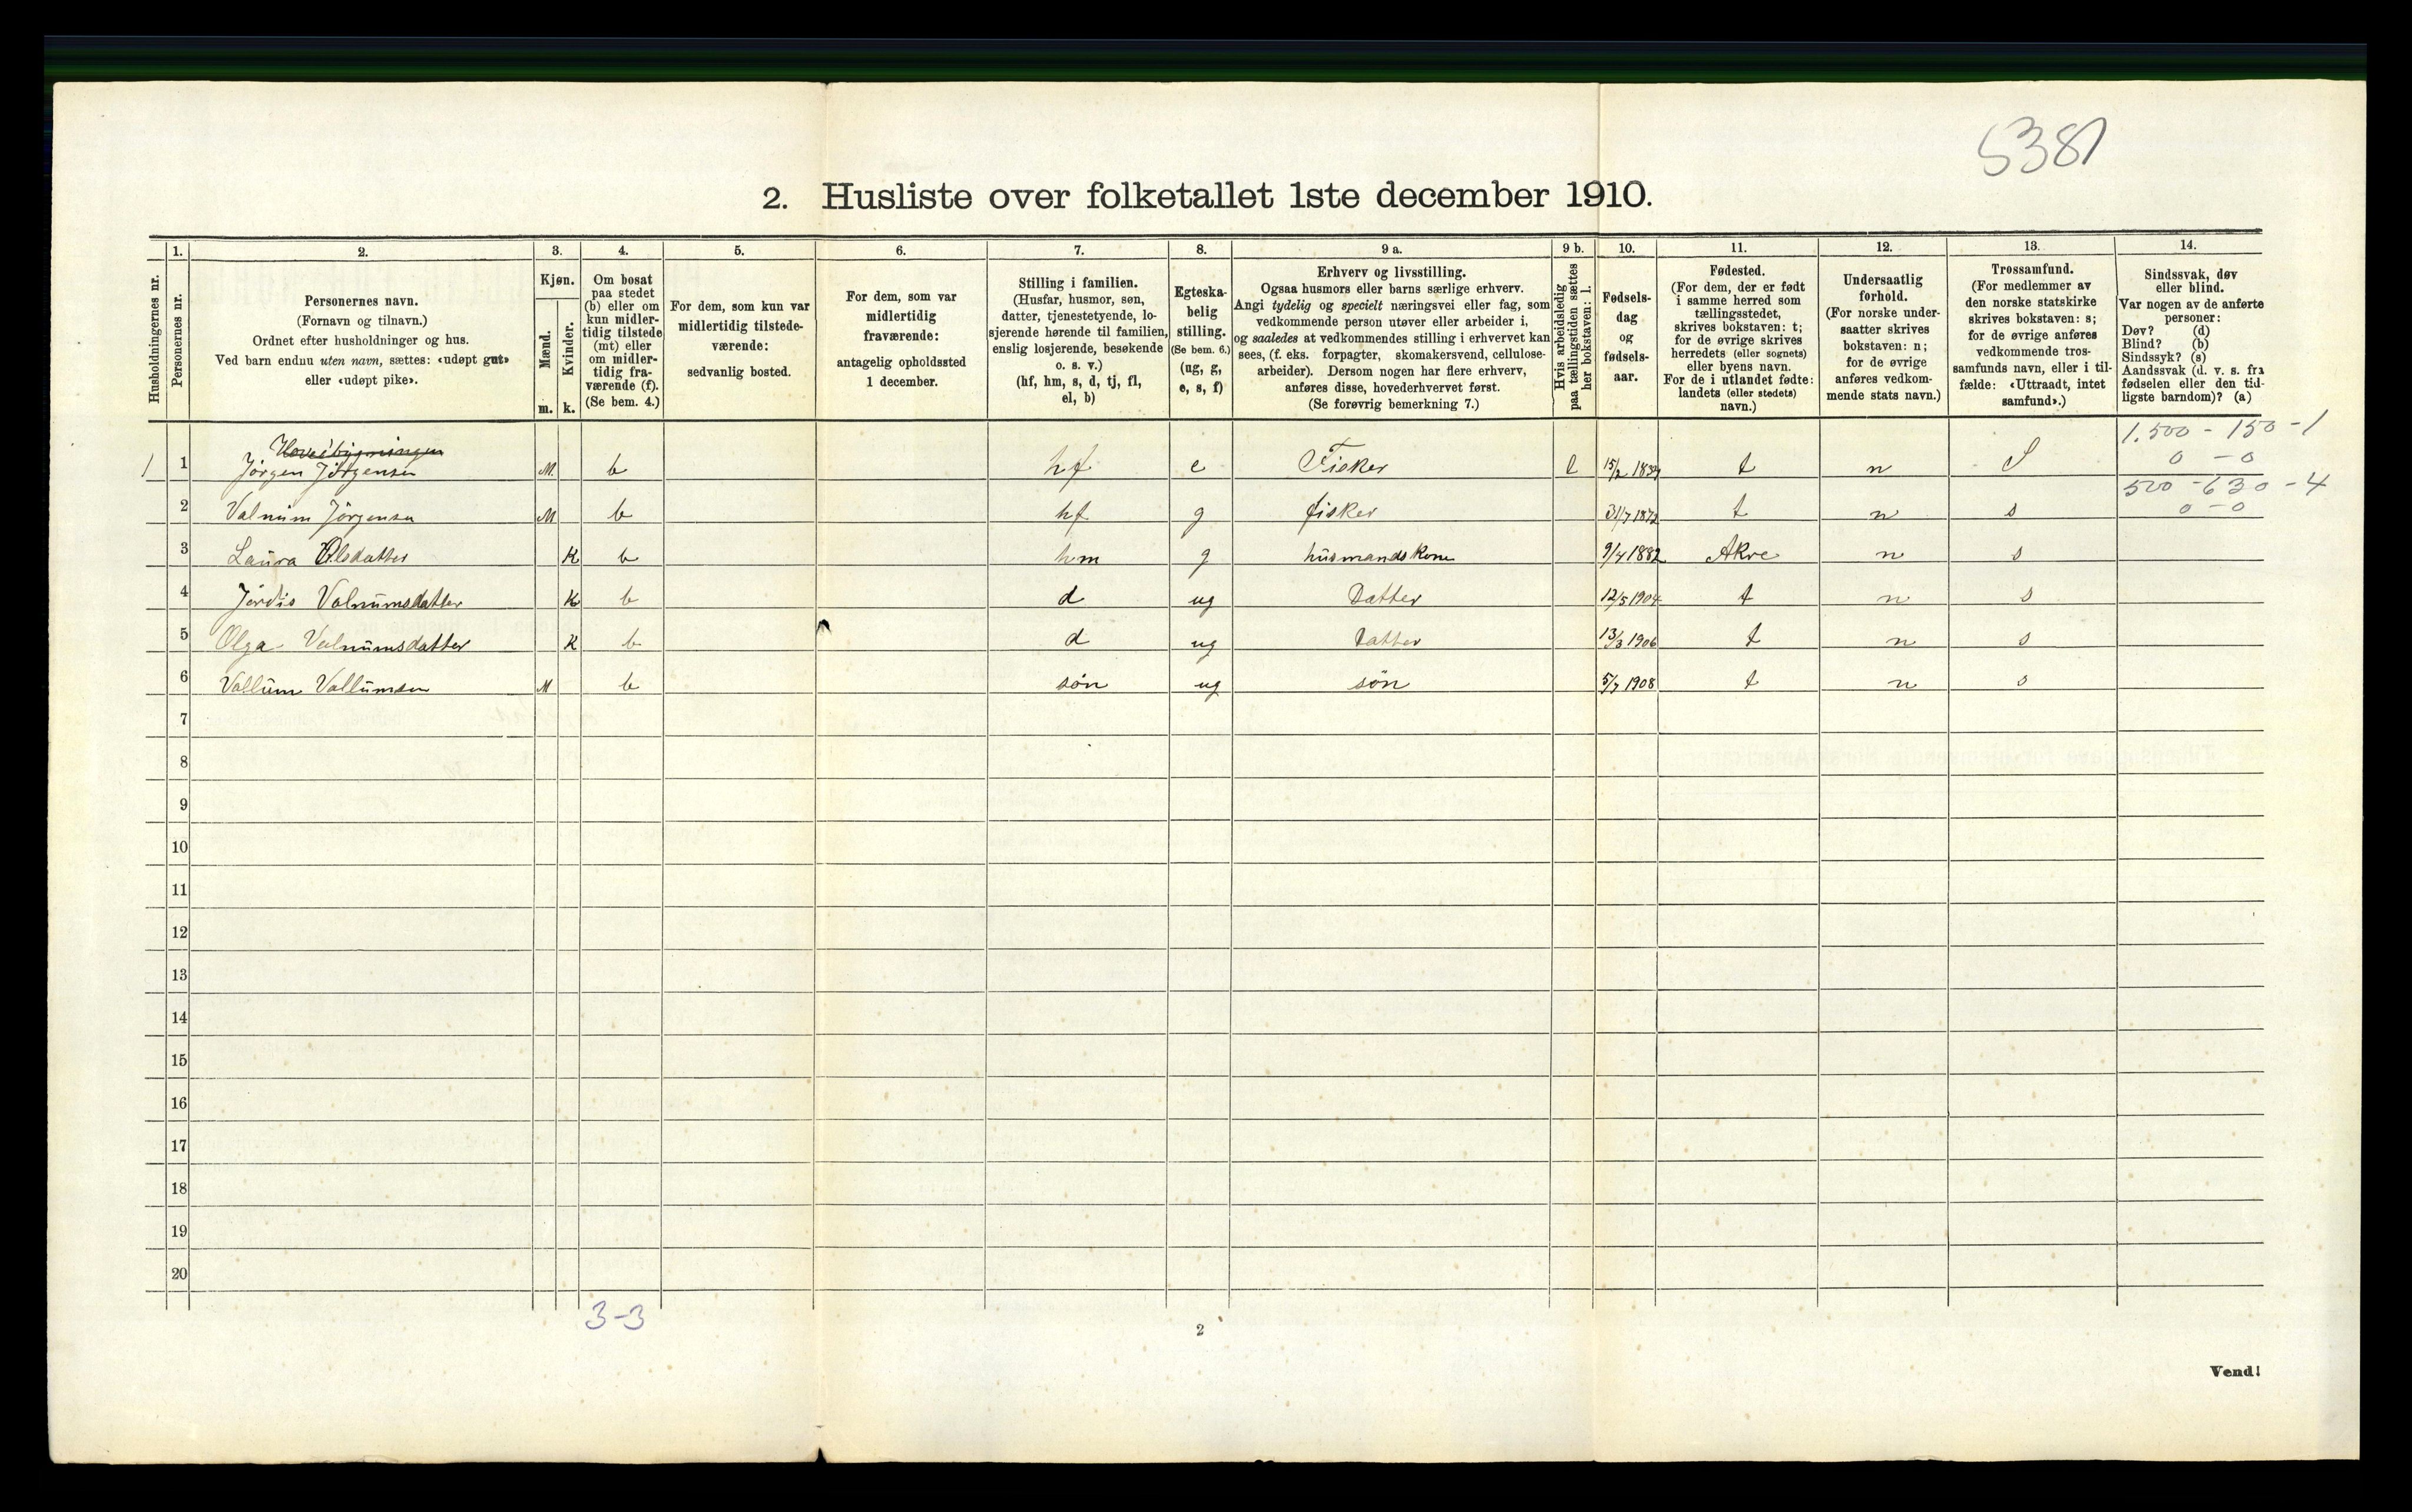 5381
2. Husliste over folketallet 1ste december 1910.
Husholdningernes nr.
1.
Personernes nr.
2.
Personernes navn.
(Fornavn og tilnavn.)
Ordnet efter husholdninger og hus.
Ved barn endnu uten navn, sættes: «udøpt gut»
eller «udøpt pike».
3.
Kjøn.
Mænd.
Kvinder.
m. k.
4.
Om bosat
paa stedet
(b) eller om
kun midler-
tidig tilstede
(mt) eller
om midler-
tidig fra-
værende (f).
(Se bem. 4.)
5.
For dem, som kun var
midlertidig tilstede-
værende:
sedvanlig bosted.
6.
For dem, som var
midlertidig
fraværende:
antagelig opholdssted
1 december.
7.
Stilling i familien.
(Husfar, husmor, søn,
datter, tjenestetyende, lo-
sjerende hørende til familien,
enslig losjerende, besøkende
o. s. v.)
(hf, hm, s, d, tj, fl,
el, b)
8.
Egteska-
belig
stilling.
(Se bem. 6.)
(ug, g,
e, s, f)
9 a.
Erhverv og livsstilling.
Ogsaa husmors eller barns særlige erhverv.
Angi tydelig og specielt næringsvei eller fag, som
vedkommende person utøver eller arbeider i,
og saaledes at vedkommendes stilling i erhvervet kan
sees, (f. eks. forpagter, skomakersvend, cellulose-
arbeider). Dersom nogen har flere erhverv,
anføres disse, hovederhvervet først.
(Se forøvrig bemerkning 7.)
9 b.
Hvis arbeidsledig
paa tællingstiden sættes
her bokstaven: l.
10.
Fødsels-
dag
og
fødsels-
aar.
11.
Fødested.
(For dem, der er født
i samme herred som
tællingsstedet,
skrives bokstaven: t;
for de øvrige skrives
herredets (eller sognets)
eller byens navn.
For de i utlandet fødte:
landets (eller stedets)
navn.)
12.
Undersaatlig
forhold.
(For norske under-
saatter skrives
bokstaven: n;
for de øvrige
anføres vedkom-
mende stats navn.)
13.
Trossamfund.
(For medlemmer av
den norske statskirke
skrives bokstaven: s;
for de øvrige anføres
vedkommende tros-
samfunds navn, eller i til-
fælde: «Uttraadt, intet
samfund».)
14.
Sindssvak, døv
eller blind.
Var nogen av de anførte
personer:
Døv? (d)
Blind? (b)
Sindssyk? (s)
Aandssvak (d. v. s. fra
fødselen eller den tid-
ligste barndom)? (a)
1.500 - 150 - 1
0 - 0
1 1 Jörgen Jörgensen M b hf e Fisker l 15/2 t n S
500 - 630 - 4
0 - 0
2 Valnum Jörgensen M b hf g fisker 31/7 1872 t n s
3 Laura Olsdatter K b hm g husmandskone 9/4 1882 Akre n s
4 Jördis Valnumsdatter K b d ug Datter 12/5 1904 t n s
5 Olga Valnumsdatter K b d ug Datter 13/3 1906 t n s
6 Vallum Vallumsen M b sön ug sön 5/7 1908 t n s
7
8
9
10
11
12
13
14
15
16
17
18
19
20
3-3
2
Vend!